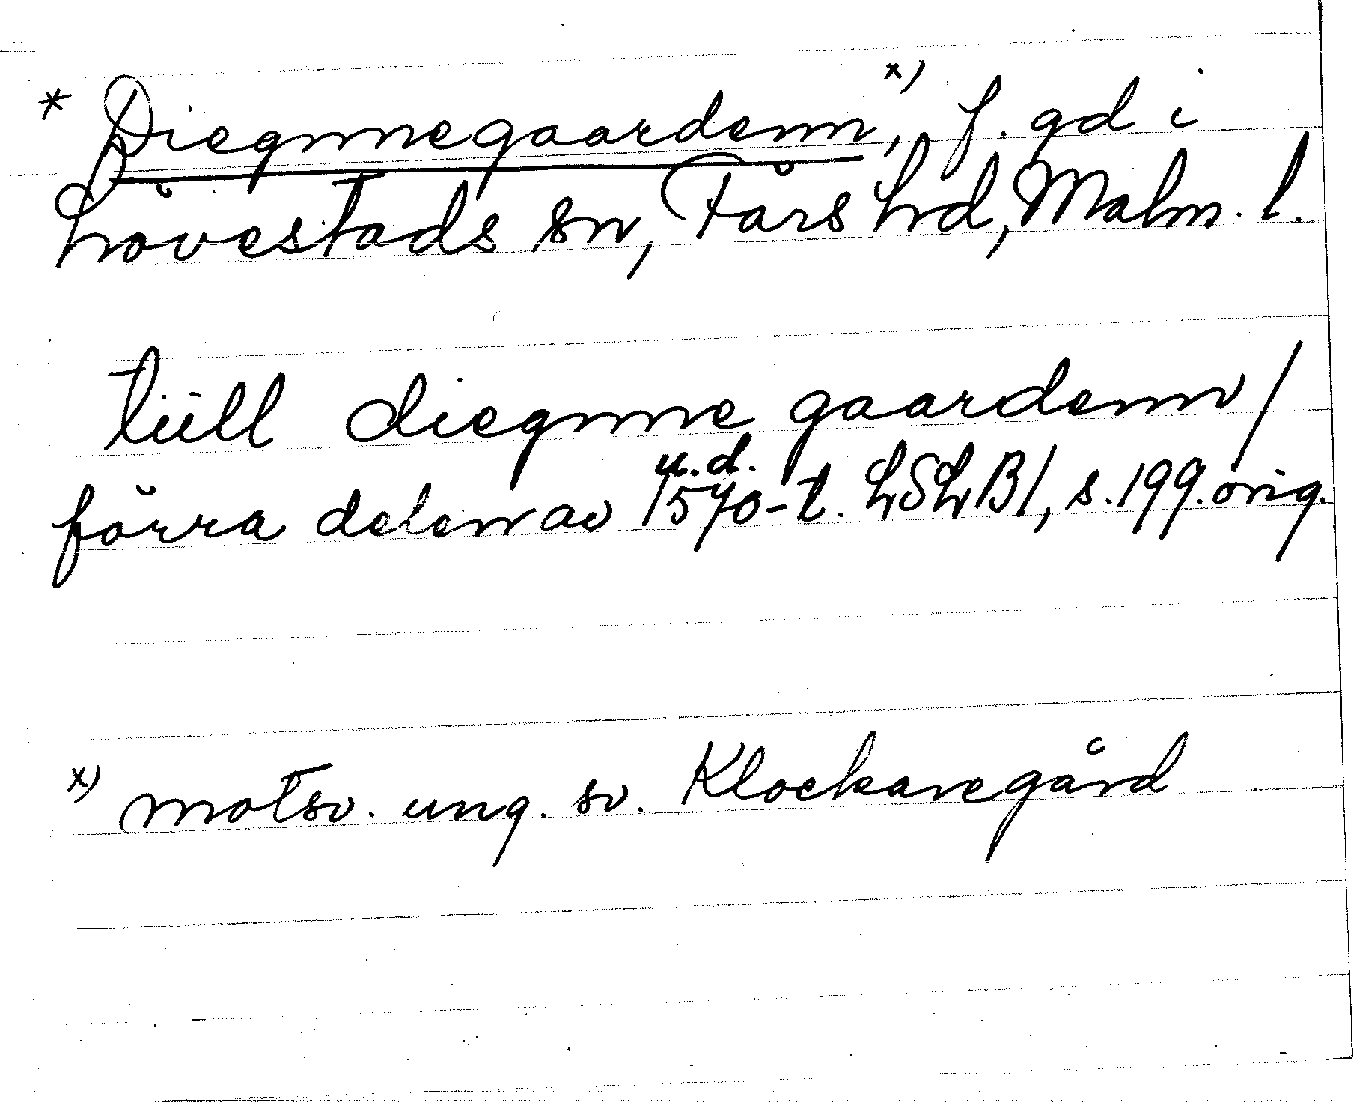 * Diegnnegaardenn x), f. gd i
Lövestads sn, Färs hd, Malm. l.
tiill diegnne gaardenn /
u.d.
förra delen av 1570-t. LSLB 1, s. 199. orig.
x) motsv. ung. sv. Klockaregård